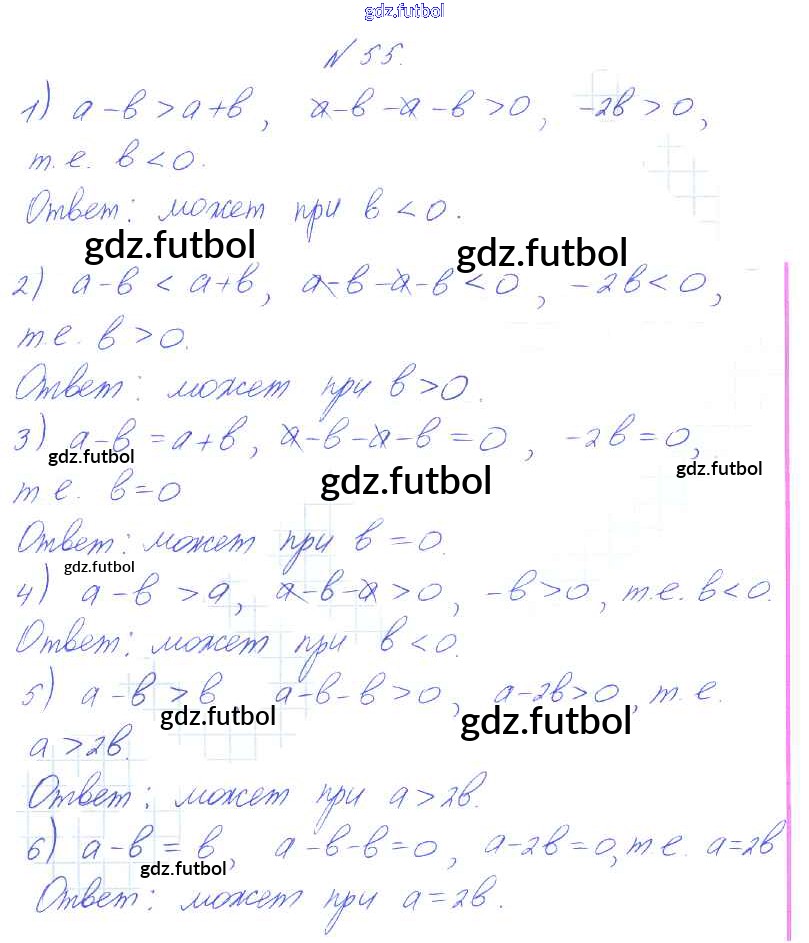 gdz.futbol
№ 55.
1) a-b > a+b, a-b-a-b>0, -2b>0,
т.е. b<0.
Ответ: может при b<0.
gdz.futbol
gdz.futbol
2) a-b < a+b, a-b-a-b<0, -2b<0,
т.е. b>0.
Ответ: может при b>0.
3) a-b=a+b, a-b-a-b=0, -2b=0,
gdz.futbol
gdz.futbol
т.е. b=0
gdz.futbol
Ответ: может при b=0.
gdz.futbol
4) a-b>a, a-b-a>0, -b>0, т.е. b<0.
Ответ: может при b<0.
5) a-b>b a-b-b>0, a-2b>0, т.е.
gdz.futbol
gdz.futbol
a>2b.
Ответ: может при a>2b.
6) a-b=b, a-b-b=0, a-2b=0, т.е. a=2b
gdz.futbol
Ответ: может при a=2b.